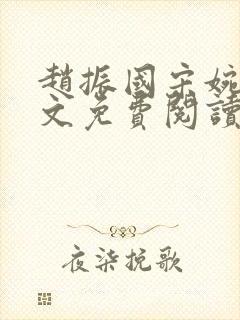 趙振國宋婉
文免費閱讀
夜柒挽歌